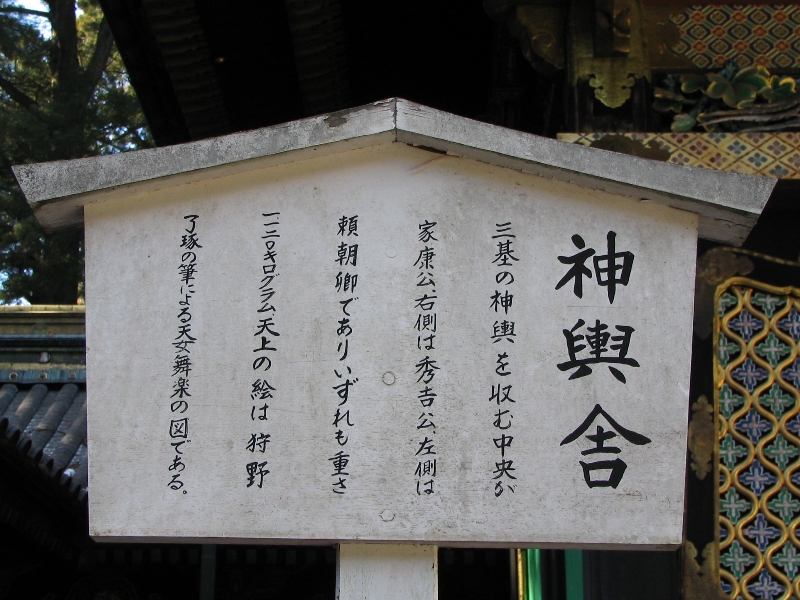 神輿舎
三基の神輿を収む中央が
家康公、右側は秀吉公、左側は
頼朝卿でありいずれも重さ
一一二〇キログラム天上の絵は狩野
了琢の筆による天女舞楽の図である。